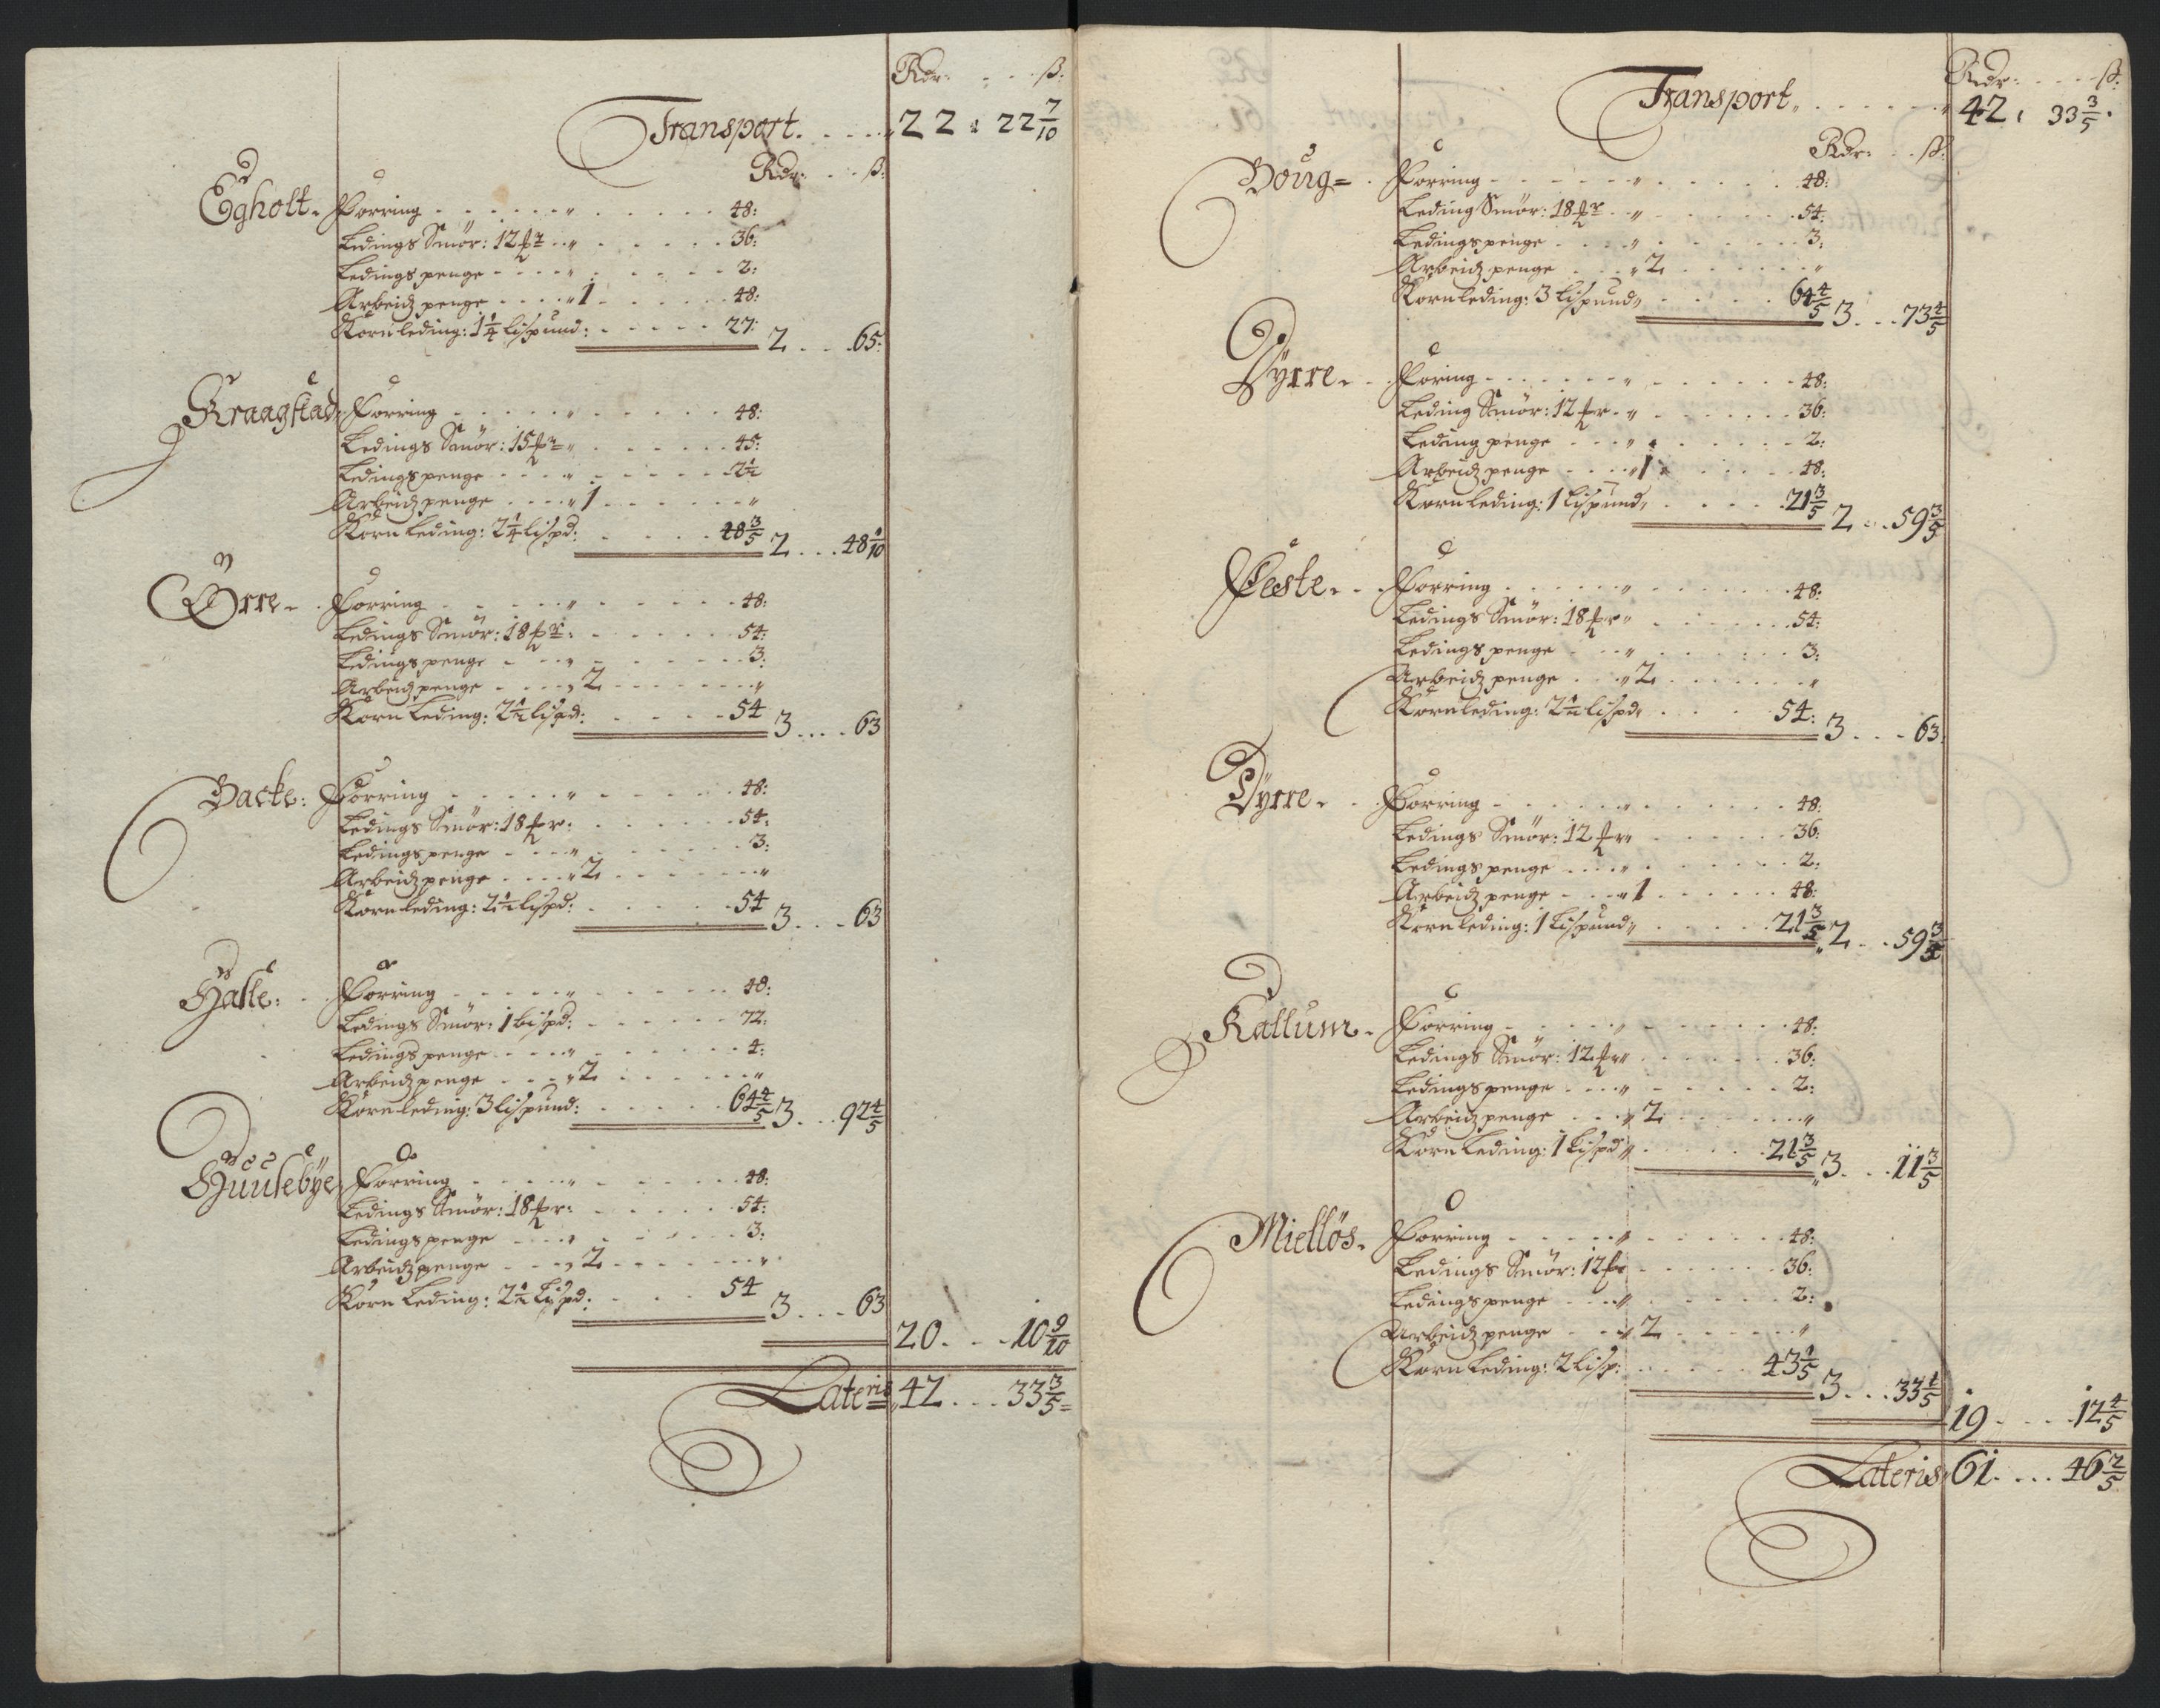 Rdr: ß:
Transport. 22: 22 7/10
Rdr: ß:
Egholt. Foring 48:
Ledings Smör: 12 pr 36:
Ledings penge 2:
Arbeidz penge 1 48:
Korn leding: 1 1/4 lispund: 27:
2 65:
Kraagstad. Foring 48:
Ledings Smör: 15 pr 45:
Ledings penge 2 1/2
Arbeidz penge 1 "
Korn leding: 2 1/4 lispd: 48 3/5
2 48 1/10
Örre. Foring 48:
Ledings Smör: 18 pr: 54:
Ledings penge 3:
Arbeidz penge 2 "
Korn leding: 2 1/2 lispd: 54
3 63
Backe: Foring 48:
Ledings Smör: 18 pr: 54:
Ledings penge 3:
Arbeidz penge 2 "
Korn leding: 2 1/2 lispd: 54
3 63
Foring 48:
Ledings Smör: 1 bispd: 72:
Ledings penge 4:
Arbeidz penge 2 "
Korn leding: 3 lispund: 64 4/5
3 92 4/5
Foring 48:
Ledings Smör: 18 pr: 54:
Ledings penge 3:
Arbeidz penge 2 "
Korn leding: 2 1/2 Lispd: 54
3 63
20 10 9/10
Lateris 42 33 3/5
Rdr: ß:
Transport 42: 33 3/5
Rdr: ß:
Houg= Foring 48:
Leding Smör: 18 pr 54:
Ledings penge 3:
Arbeidz penge 2 "
Korn leding: 3 lispund 64 4/5
3 73 4/5
Dyrre. Foring 48:
Leding Smör: 12 pr 36:
Leding penge 2:
Arbeidz penge 1 48:
Korn leding: 1 lispund 21 3/5
2 59 3/5
Feste. Foring 48:
Ledings Smör: 18 pr 54:
Ledings penge 3:
Arbeidz penge 2 "
Korn leding: 2 1/2 lispd 54:
3 63:
Dyrre. Foring 48:
Ledings Smör: 12 pr 36:
Ledings penge 2:
Arbeidz penge 1 48:
Korn leding: 1 Lispund 21 3/5
2 59 3/5
Kallum. Foring 48:
Ledings Smör: 12 pr 36:
Ledings penge 2:
Arbeidz penge 2 "
Korn leding: 1 Lispd 21 3/5
3 11 3/5
Miellös. Foring 48:
Ledings Smör: 12 pr 36:
Ledings penge 2:
Arbeidz penge 2 "
Korn leding: 2 lisp: 43 1/5
3 33 1/5
19 12 4/5
Lateris 61 46 2/5